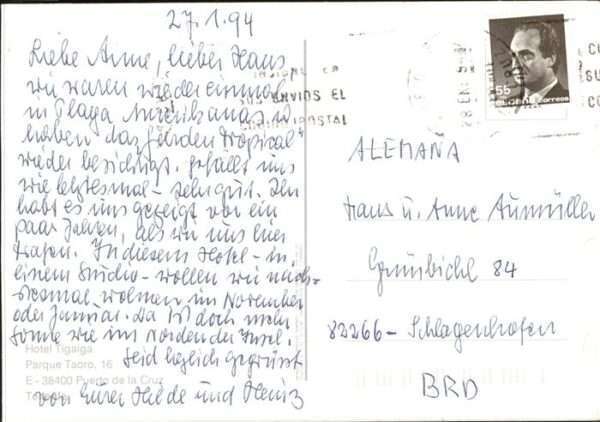 27.1.94
Liebe Anne, lieber Hans
wir waren wieder einmal
in Playa Americanas u.
haben das "Jardin Tropical"
wieder besichtigt. gefällt uns
wie letztesmal - sehr gut. Ihr
habt es uns gezeigt vor ein
paar Jahren, als wir uns hier
trafen. In diesem Hotel - in
einem Studio - wollen wir näch-
stesmal wohnen im November
oder Januar. Da ist doch mehr
Sonne wie im Norden der Insel.
Seid herzlich gegrüsst
von Eurer Hilde und Heinz
Hotel Tigaiga
Parque Taoro, 16
E - 38400 Puerto de la Cruz
ENVIOS EL
POSTAL
55
correos
ALEMANA
Hans u. Anne Aumüller
Grünbichl 84
82266 - Schlagenhofen
BRD